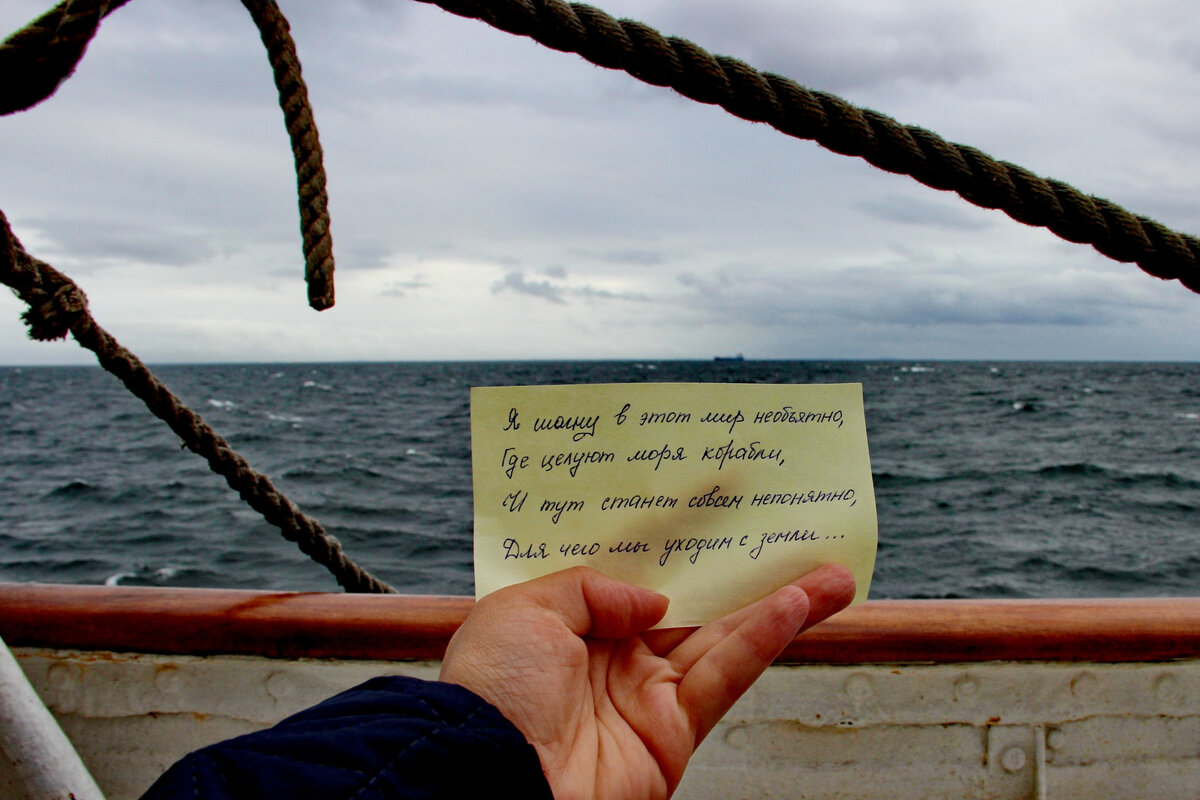 Я шагну в этот мир необъятно,
Где целуют моря корабли,
И тут станет совсем непонятно,
Для чего мы уходим с земли...